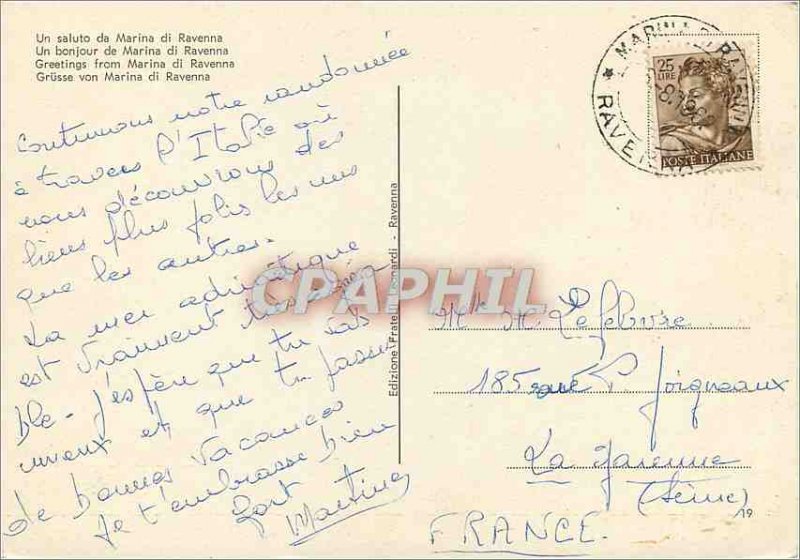 Un saluto da Marina di Ravenna
Un bonjour de Marina di Ravenna
Greetings from Marina di Ravenna
Grüsse von Marina di Ravenna
Continuons notre randonnée
à travers l'Italie où
nous découvrons des
liens plus jolis les uns
que les autres.
La mer adriatique
est vraiment
ble - J'espère que tu vas
mieux et que tu passes
de bonnes vacances
Je t'embrasse bien
fort
Martine
Edizione Fratelli Leonardi - Ravenna
CPAPHIL
MARINA DI RAVENNA
RAVENNA
25
LIRE
POSTE ITALIANE
Melle M. Lefebvre
185 rue P. Joigneaux
La Garenne
(Seine)
19
FRANCE.